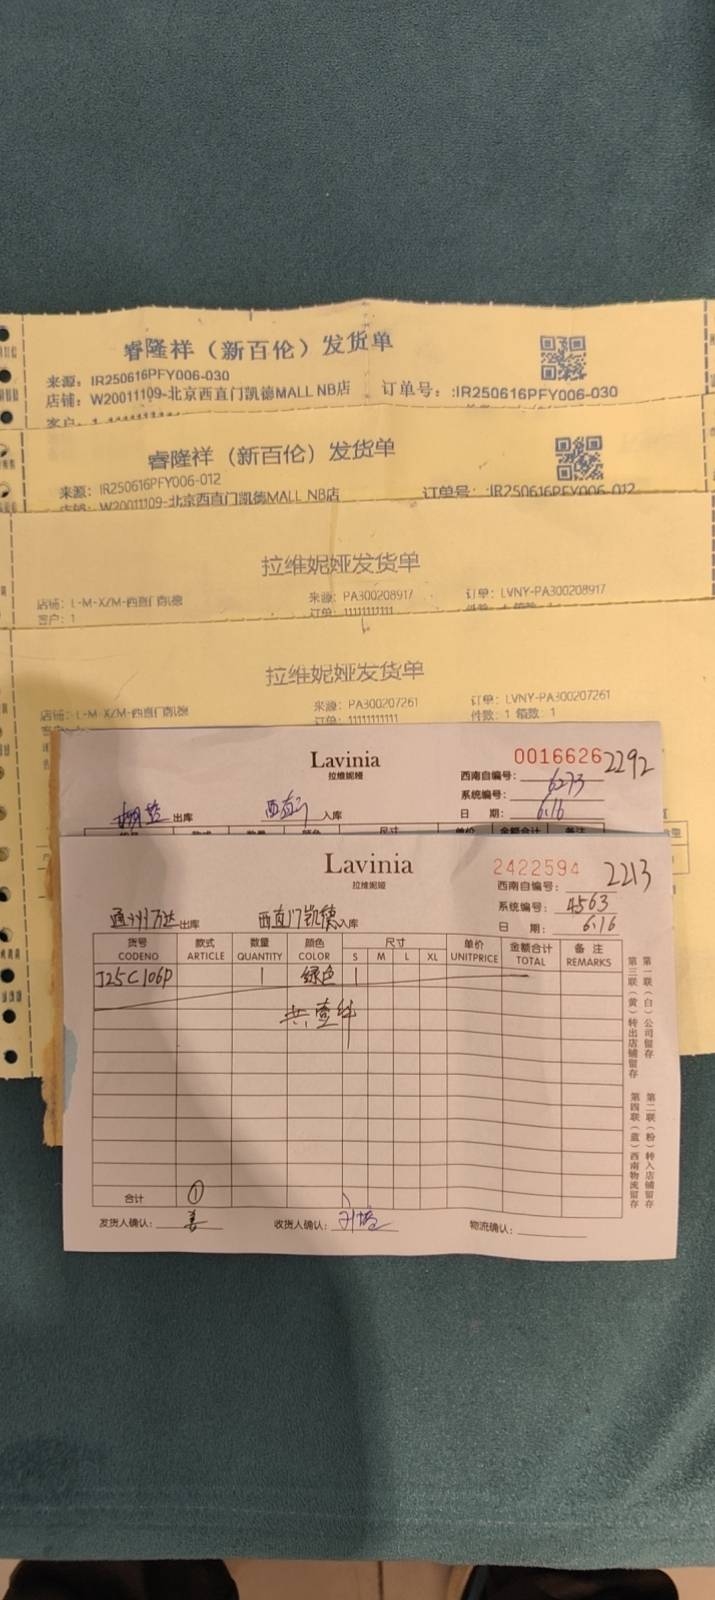 睿隆祥（新百伦）发货单
来源：IR250616PFY006-030
店铺：W20011109-北京西直门凯德MALL NB店 订单号：:IR250616PFY006-030
客户：1
睿隆祥（新百伦）发货单
来源：IR250616PFY006-012
店铺：W20011109-北京西直门凯德MALL NB店 订单号：:IR250616PFY006-012
拉维妮娅发货单
店铺：L-M-XZM-西直门凯德 来源：PA300208917 订单：LVNY-PA300208917
客户：1 订单：11111111111
拉维妮娅发货单
店铺：L-M-XZM-西直门凯德 来源：PA300207261 订单：LVNY-PA300207261
订单：11111111111 件数：1 箱数：1
Lavinia
拉维妮娅
0016626 2292
西南自编号：
系统编号：6273
出库 西直门 入库 日 期：6.16
数量 颜色 尺寸 单价 金额合计 备注
Lavinia
拉维妮娅
2422594
西南自编号：2213
系统编号：4563
通州万达出库 西直门凯德入库 日 期：6.16
货号 款式 数量 颜色 尺寸 单价 金额合计 备 注
CODENO ARTICLE QUANTITY COLOR S M L XL UNITPRICE TOTAL REMARKS
J25C106P 1 绿色 1
共壹件
合计 ①
发货人确认：姜 收货人确认： 物流确认：
第一联（白）公司留存
第三联（黄）转出店铺留存
第二联（粉）转入店铺留存
第四联（蓝）西南物流留存